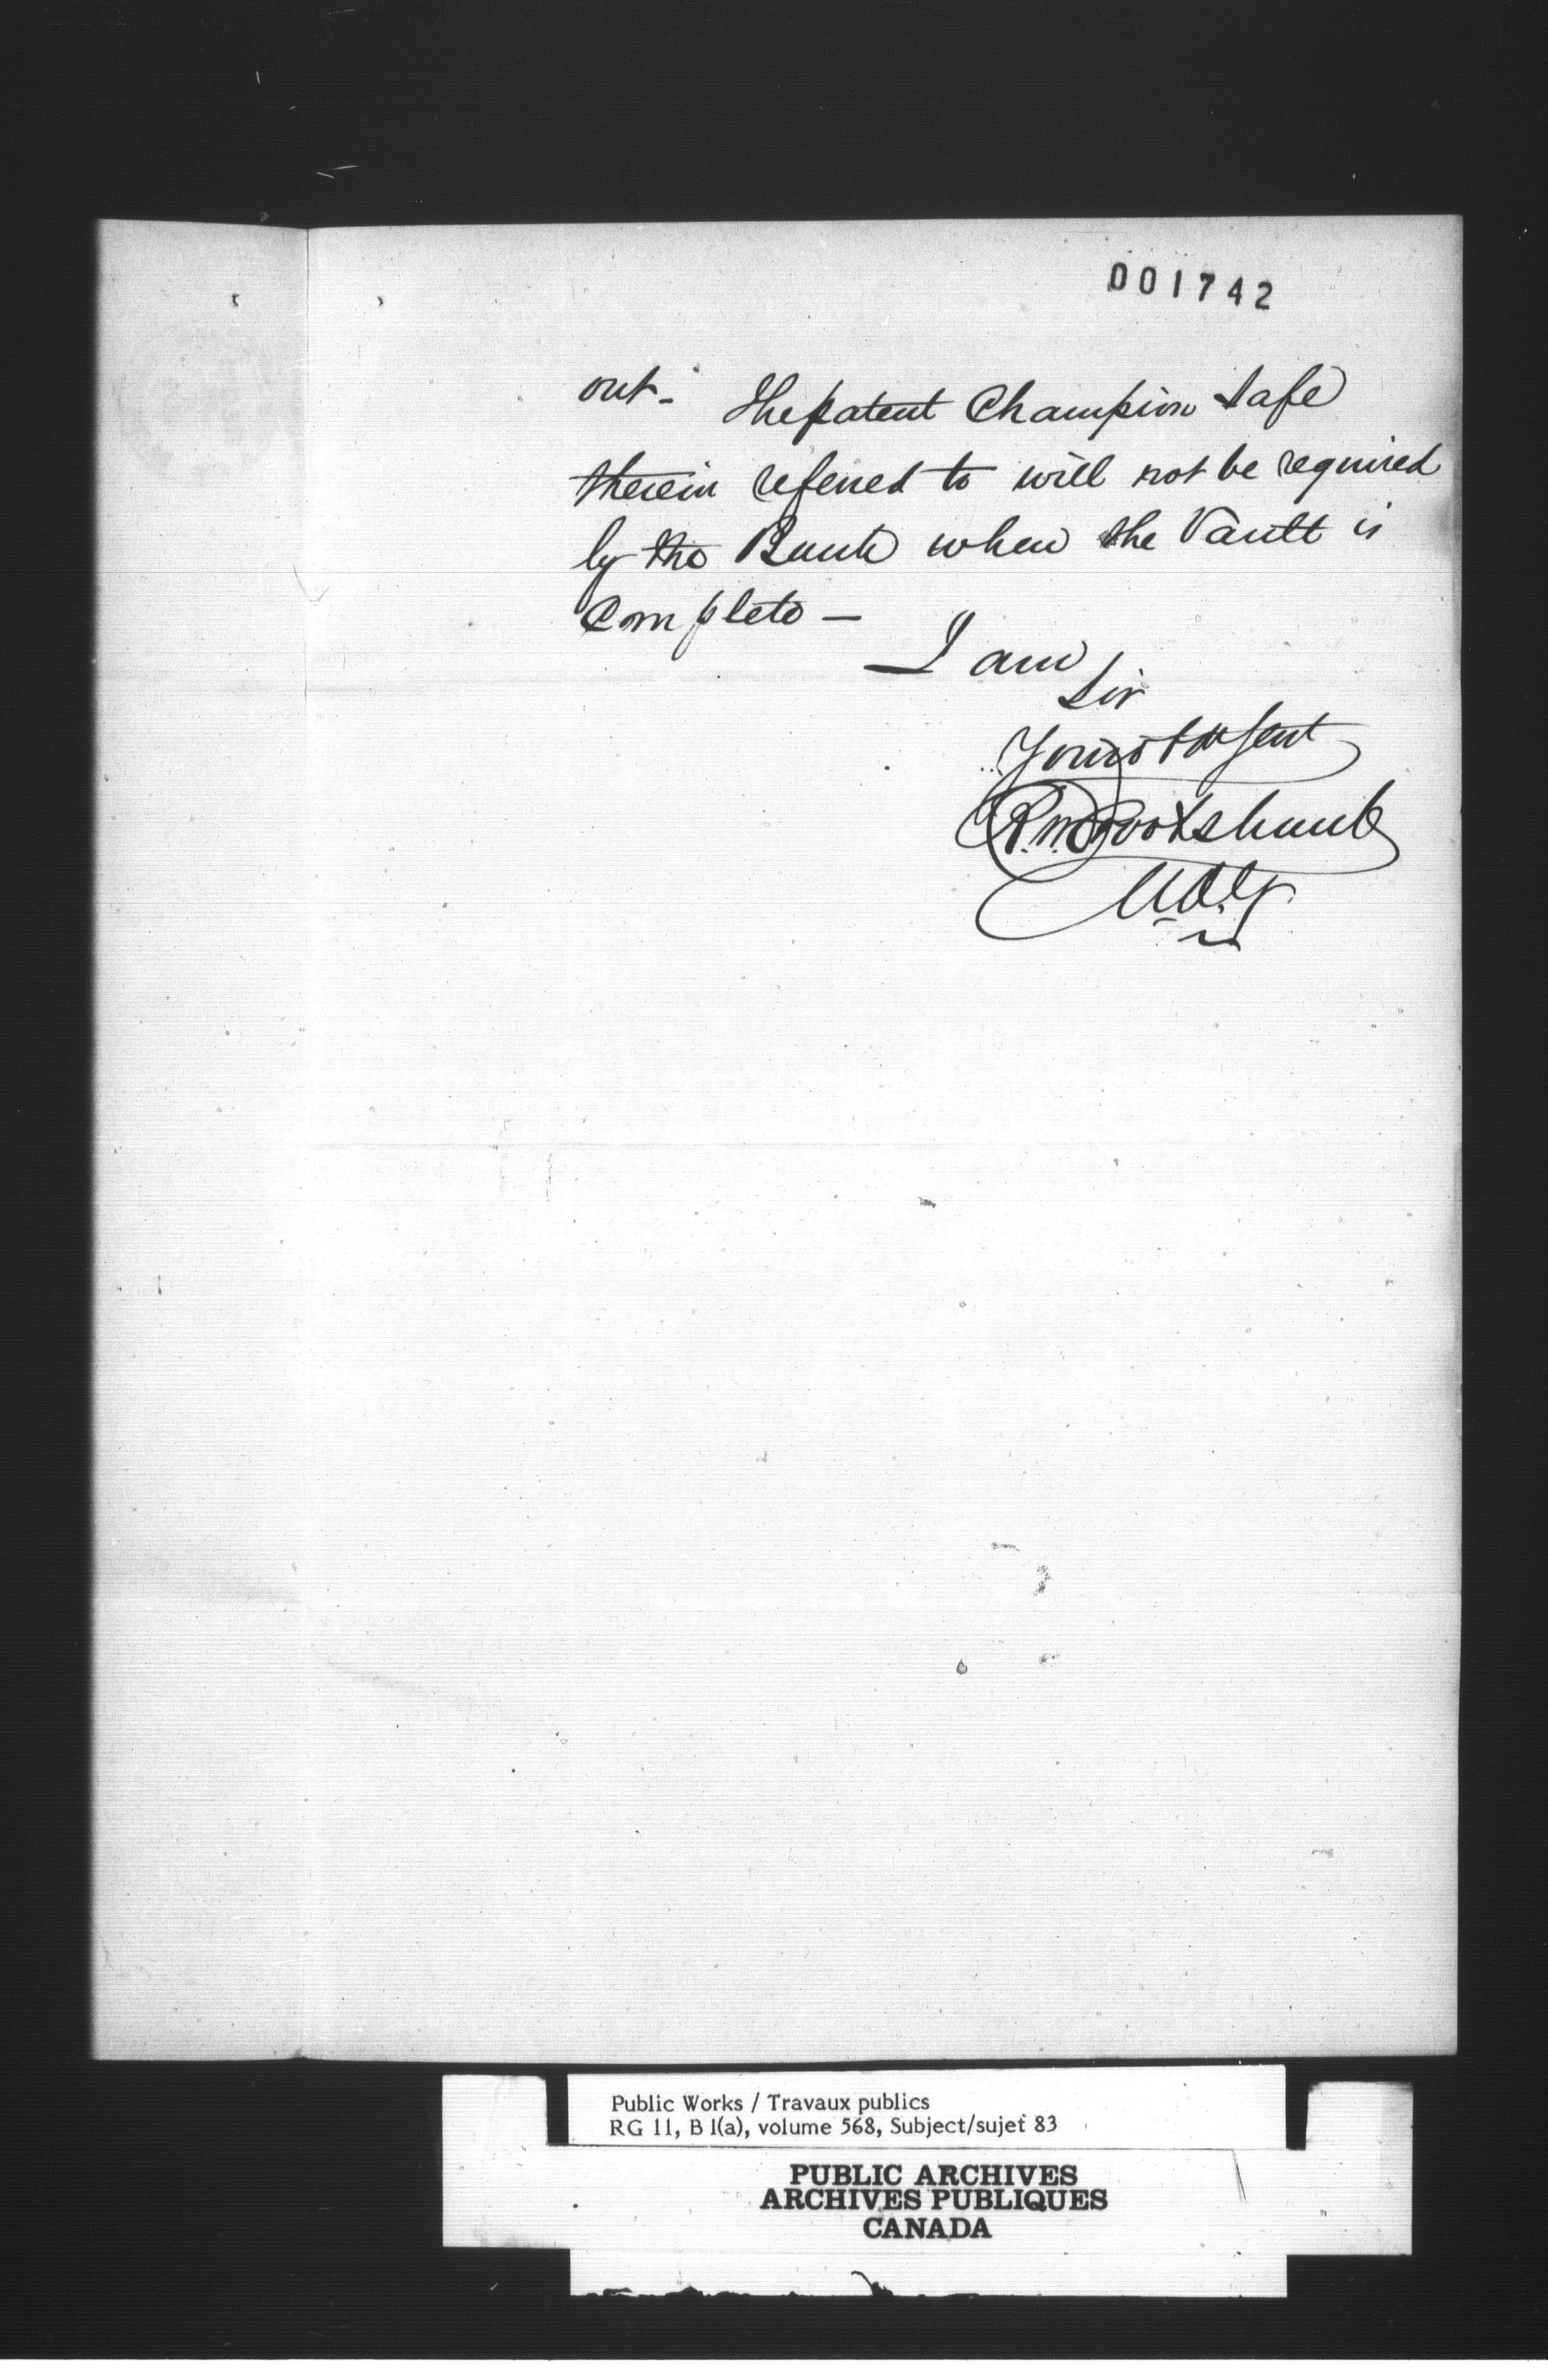 001742
out. The patent Champion Safe
therein referred to will not be required
by the Bank when the Vault is
Complete —
I am
Sir
Your obt Sert
R. W. Crookshank
Public Works / Travaux publics
RG 11, B 1(a), volume 568, Subject/sujet 83
PUBLIC ARCHIVES
ARCHIVES PUBLIQUES
CANADA